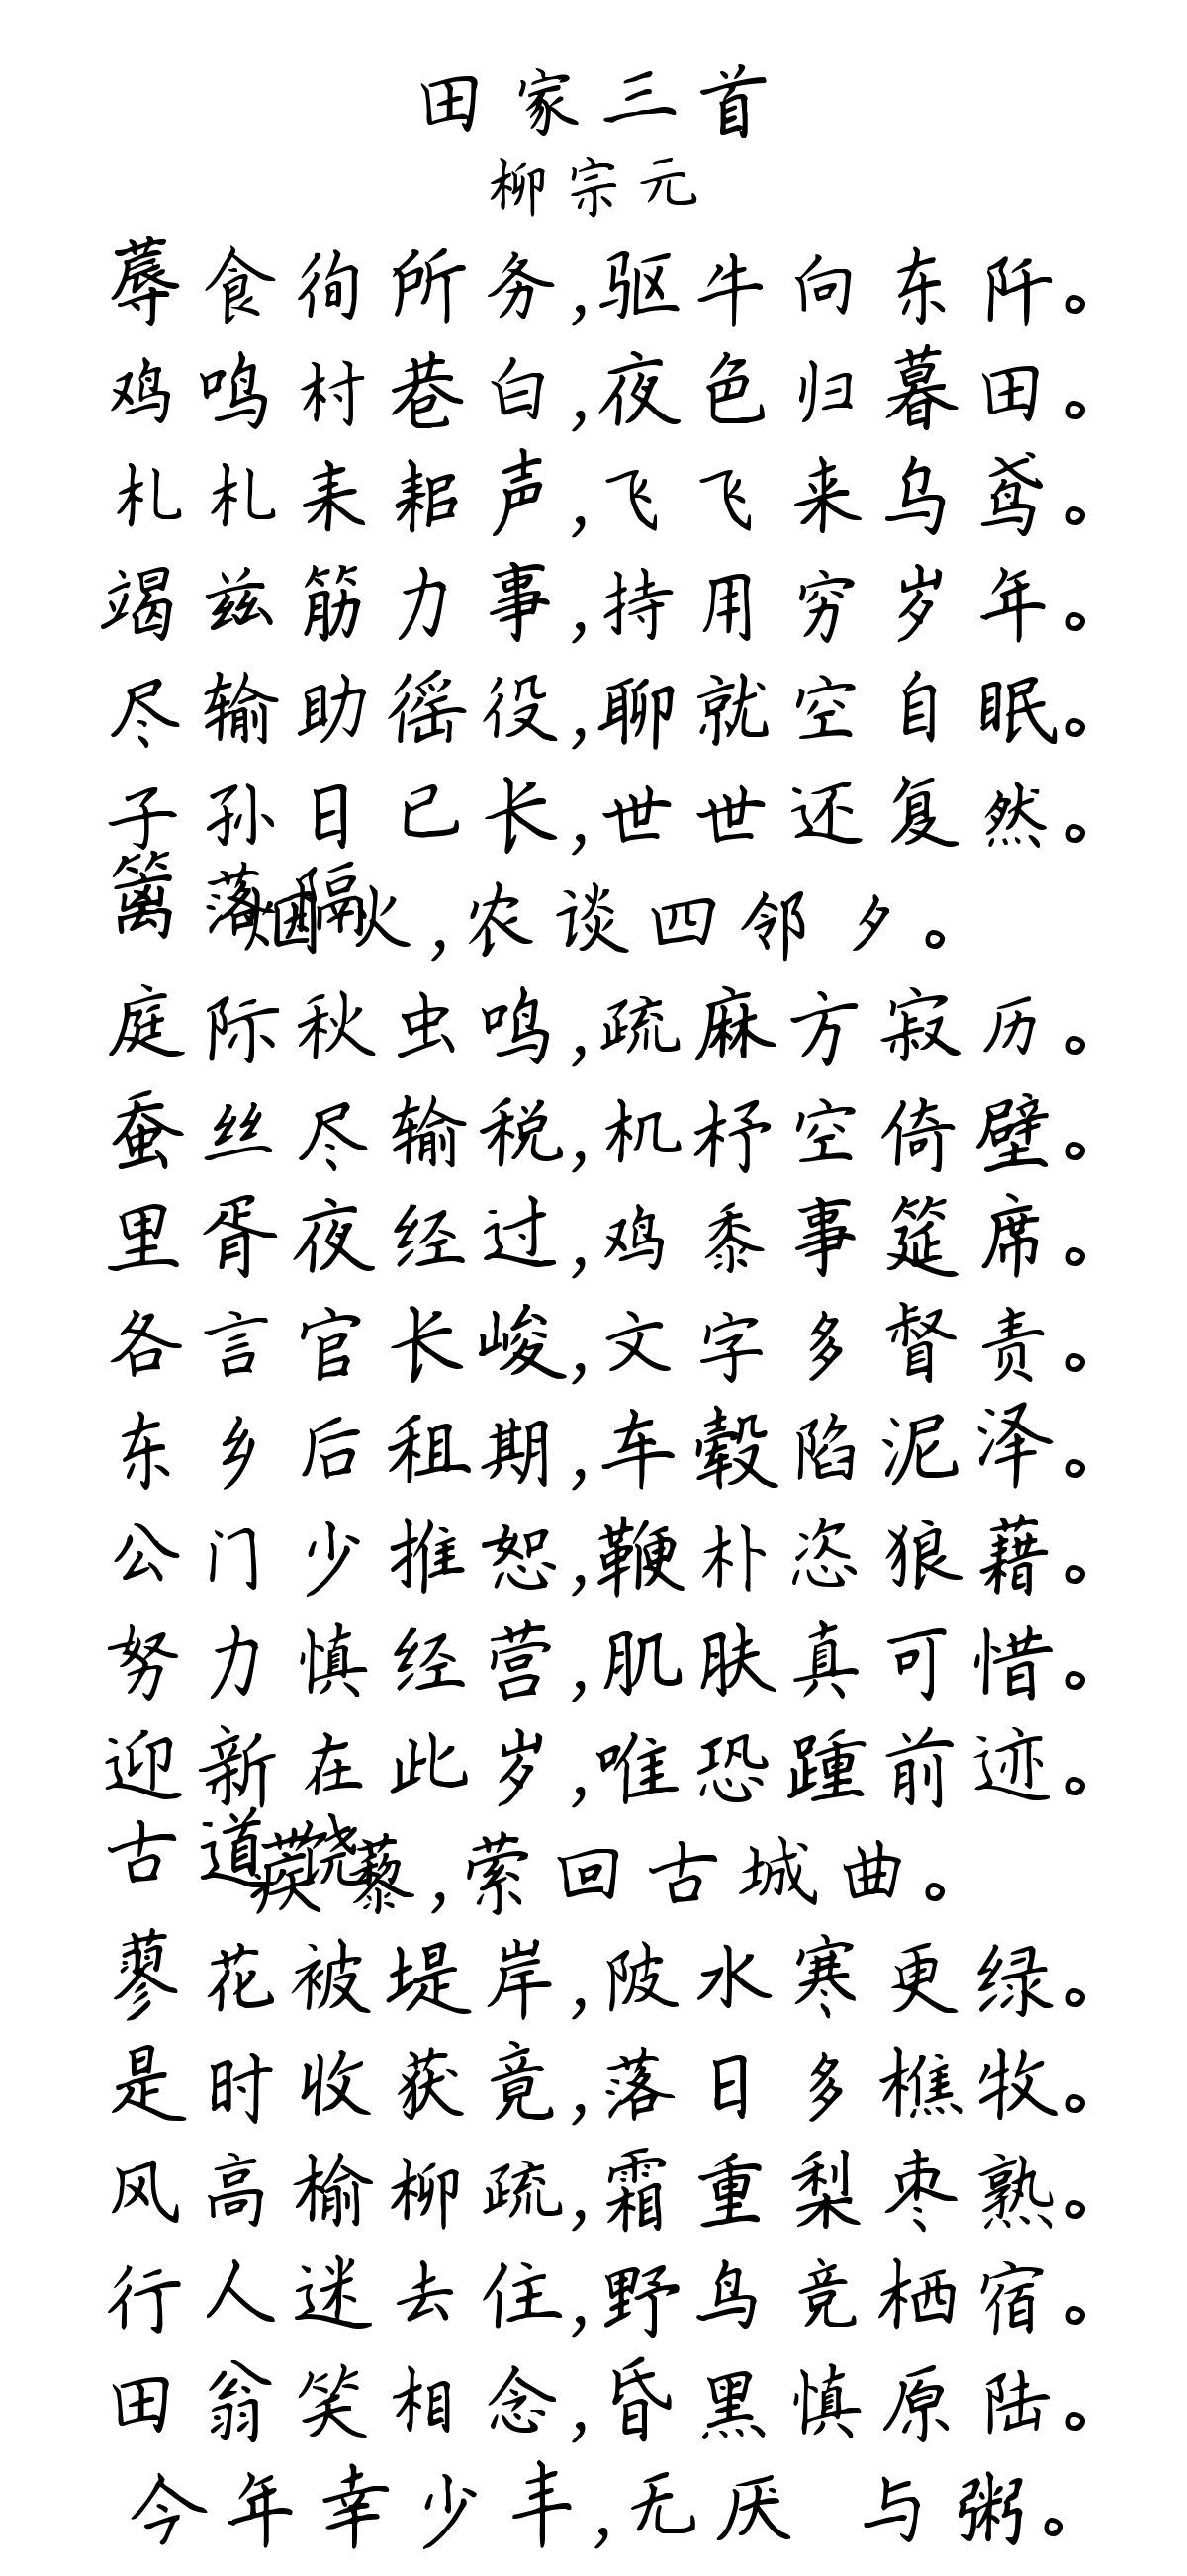 田家三首
柳宗元
蓐食徇所务,驱牛向东阡。
鸡鸣村巷白,夜色归暮田。
札札耒耜声,飞飞来乌鸢。
竭兹筋力事,持用穷岁年。
尽输助徭役,聊就空自眠。
子孙日已长,世世还复然。
篱落隔烟火,农谈四邻夕。
庭际秋虫鸣,疏麻方寂历。
蚕丝尽输税,机杼空倚壁。
里胥夜经过,鸡黍事筵席。
各言官长峻,文字多督责。
东乡后租期,车毂陷泥泽。
公门少推恕,鞭朴恣狼藉。
努力慎经营,肌肤真可惜。
迎新在此岁,唯恐踵前迹。
古道饶蒺藜,萦回古城曲。
蓼花被堤岸,陂水寒更绿。
是时收获竟,落日多樵牧。
风高榆柳疏,霜重梨枣熟。
行人迷去住,野鸟竞栖宿。
田翁笑相念,昏黑慎原陆。
今年幸少丰,无厌 与粥。